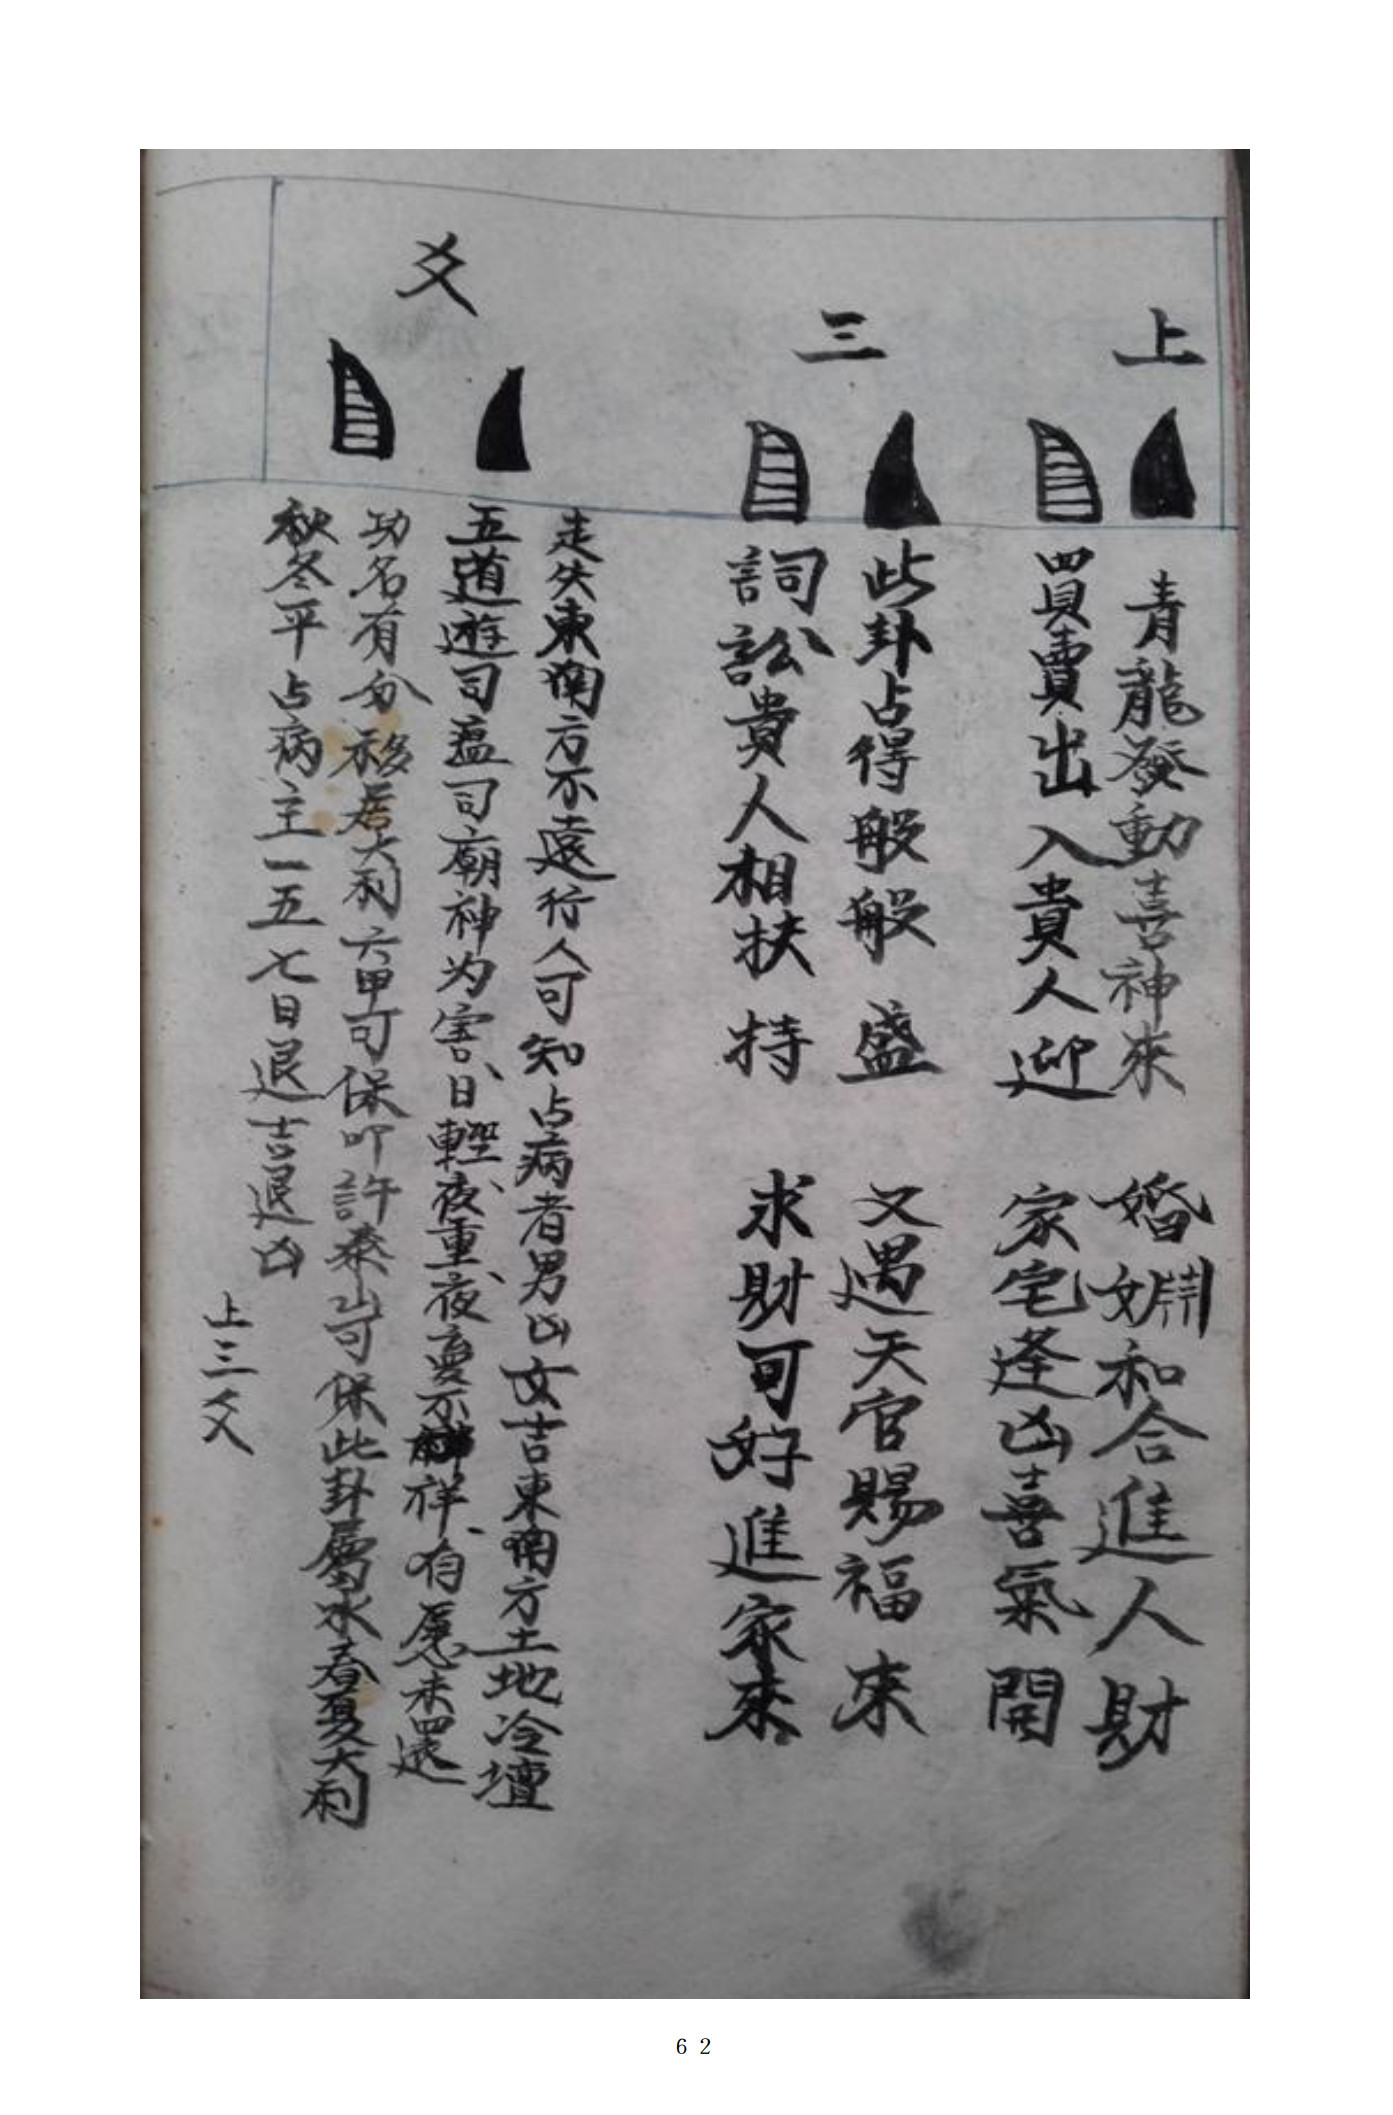 上
三
爻
青龍發動喜神來 婚姻和合進人財
買賣出入貴人迎 家宅逢凶喜氣開
此卦占得般般盛 又遇天官賜福來
詞訟貴人相扶持 求財可好進家來
走失東南方不遠行人可知占病者男凶女吉東南方土地冷壇
五道遊司瘟司廟神为害、日輕、夜重、夜變不祥、有愿未還
功名有分移居大利六甲可保叩許泰山可保此卦屬水春夏大利
秋冬平占病主一五七日退吉退凶
上三爻
62